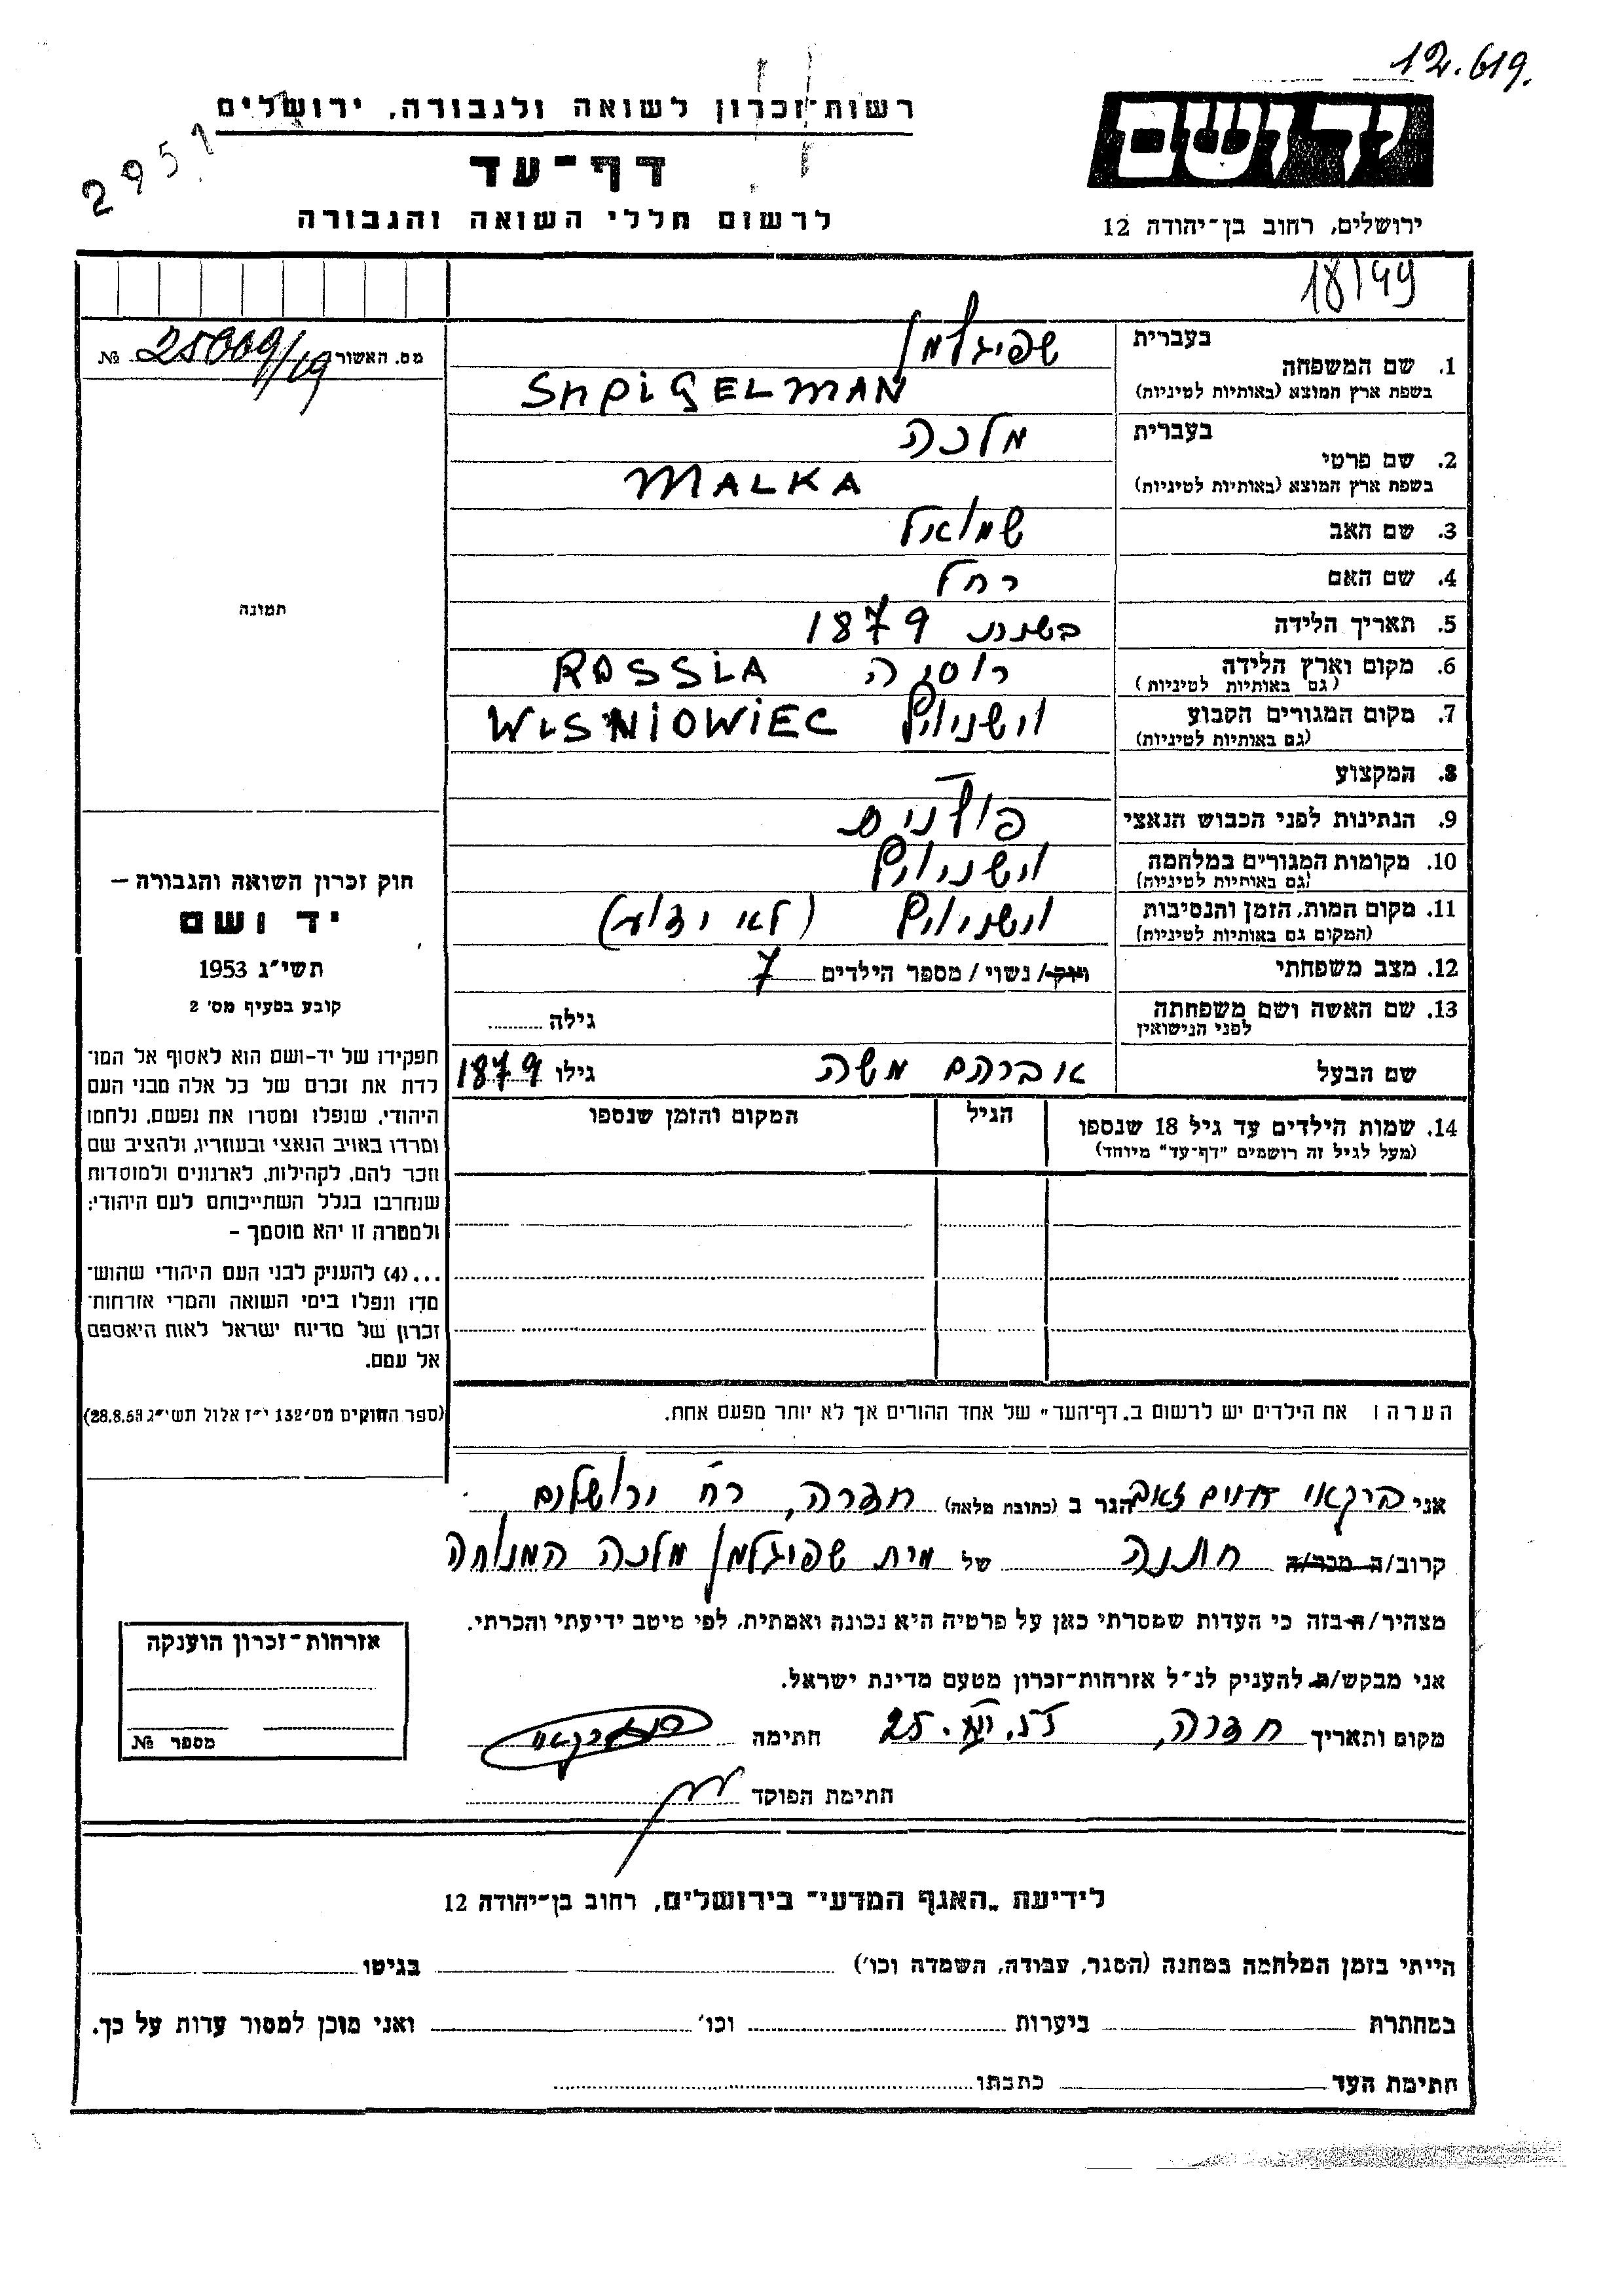 12.619.
רשות-זכרון לשואה ולגבורה, ירושלים
2951
יד ושם
דף-עד
לרשום חללי השואה והגבורה
ירושלים, רחוב בן-יהודה 12
18149
מס. האשור № 25009/19
תמונה
1. שם המשפחה בעברית שפיגלמן
בשפת ארץ המוצא (באותיות לטיניות) SHPIGELMAN
2. שם פרטי בעברית מלכה
בשפת ארץ המוצא (באותיות לטיניות) MALKA
3. שם האב שמואל
4. שם האם רחל
5. תאריך הלידה בשנת 1879
6. מקום וארץ הלידה רוסיה ROSSIA
(גם באותיות לטיניות)
7. מקום המגורים הקבוע וישניוביץ WISNIOWIEC
(גם באותיות לטיניות)
8. המקצוע —
9. הנתינות לפני הכבוש הנאצי פולנית
10. מקומות המגורים במלחמה וישניוביץ
(גם באותיות לטיניות)
11. מקום המות, הזמן והנסיבות וישניוביץ (לא ידוע)
(המקום גם באותיות לטיניות)
12. מצב משפחתי רווק/ נשוי / מספר הילדים 7
13. שם האשה ושם משפחתה גילה
לפני הנישואין
שם הבעל אברהם משה גילו 1879
14. שמות הילדים עד גיל 18 שנספו הגיל המקום והזמן שנספו
(מעל לגיל זה רושמים "דף-עד" מיוחד)
הערה: את הילדים יש לרשום ב"דף-העד" של אחד ההורים אך לא יותר מפעם אחת.
חוק זכרון השואה והגבורה —
יד ושם
תשי"ג 1953
קובע בסעיף מס' 2
תפקידו של יד-ושם הוא לאסוף אל המו-
לדת את זכרם של כל אלה מבני העם
היהודי, שנפלו ומסרו את נפשם, נלחמו
ומרדו באויב הנאצי ובעוזריו, ולהציב שם
וזכר להם, לקהילות, לארגונים ולמוסדות
שנחרבו בגלל השתייכותם לעם היהודי;
ולמטרה זו יהא מוסמך —
...(4) להעניק לבני העם היהודי שהוש-
מדו ונפלו בימי השואה והמרי אזרחות-
זכרון של מדינת ישראל לאות היאספם
אל עמם.
(ספר החוקים מס' 132 י"ז אלול תשי"ג 28.8.53)
אני ברקאי חיים זאב הגר ב (כתובת מלאה) חדרה, רח' ירושלים
קרוב/ה מכר/ה חתנה של מית שפיגלמן מלכה המנוחה
מצהיר/ה בזה כי העדות שמסרתי כאן על פרטיה היא נכונה ואמתית, לפי מיטב ידיעתי והכרתי.
אני מבקש/ת להעניק לנ"ל אזרחות-זכרון מטעם מדינת ישראל.
מקום ותאריך חדרה, חתימה
חתימת הפוקד
אזרחות-זכרון הוענקה
מספר №
לידיעת "האגף המדעי" בירושלים, רחוב בן-יהודה 12
הייתי בזמן המלחמה במחנה (הסגר, עבודה, השמדה וכו') בגיטו
במחתרת ביערות וכו' ואני מוכן למסור עדות על כך.
חתימת העד כתבתו